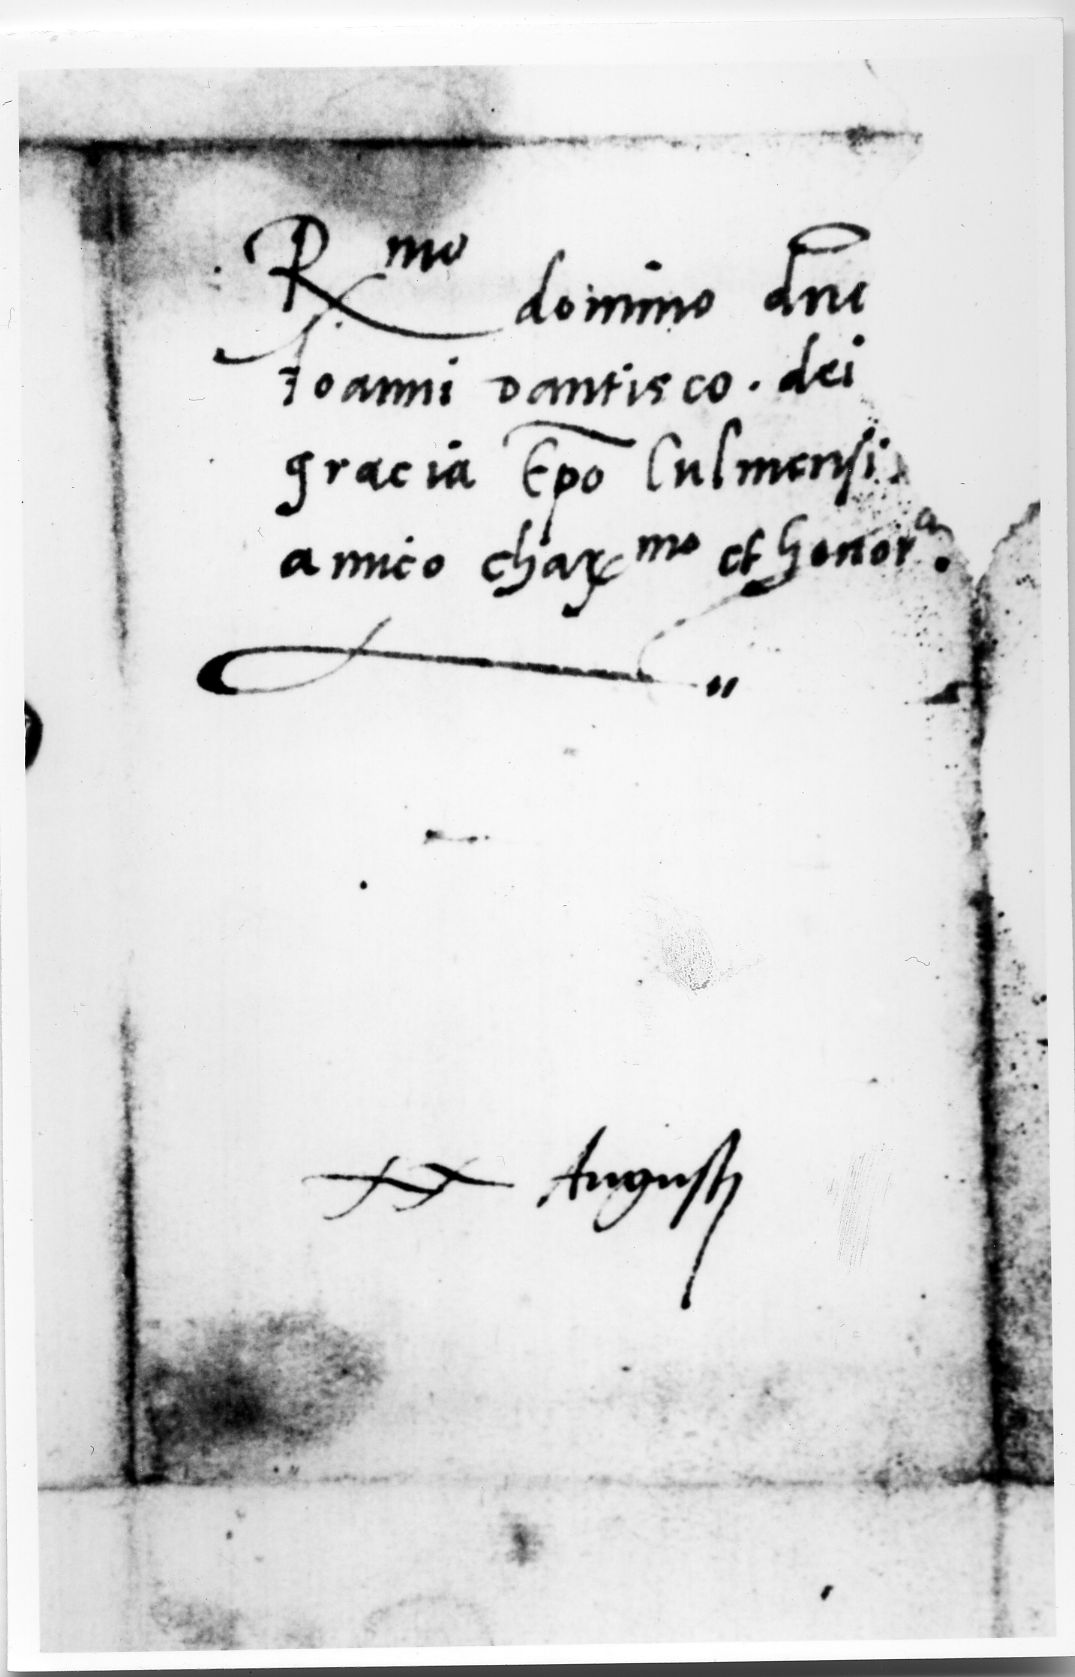 R^mo domino dn̄e
Ioanni dantisco. dei
gracia Ep̄o Culmensi
amico char^mo et honor^a.
xx Augusti